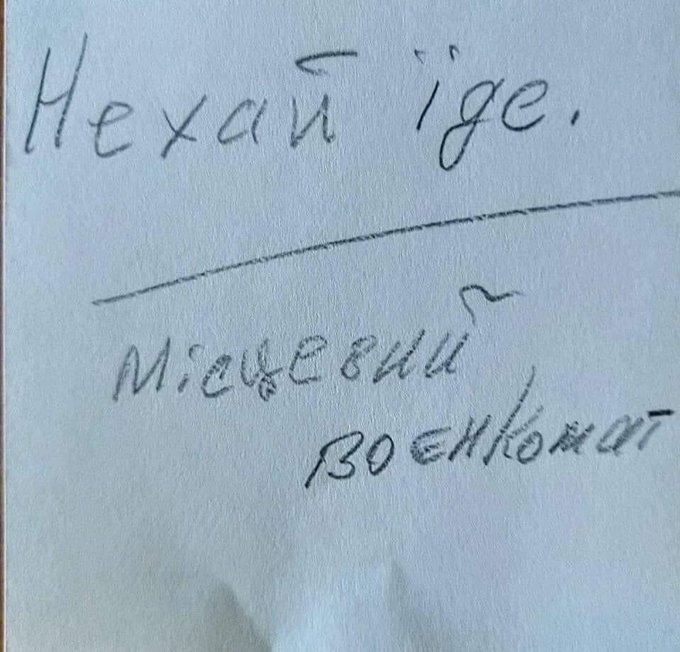 Нехай їде.
Місцевий
военкомат